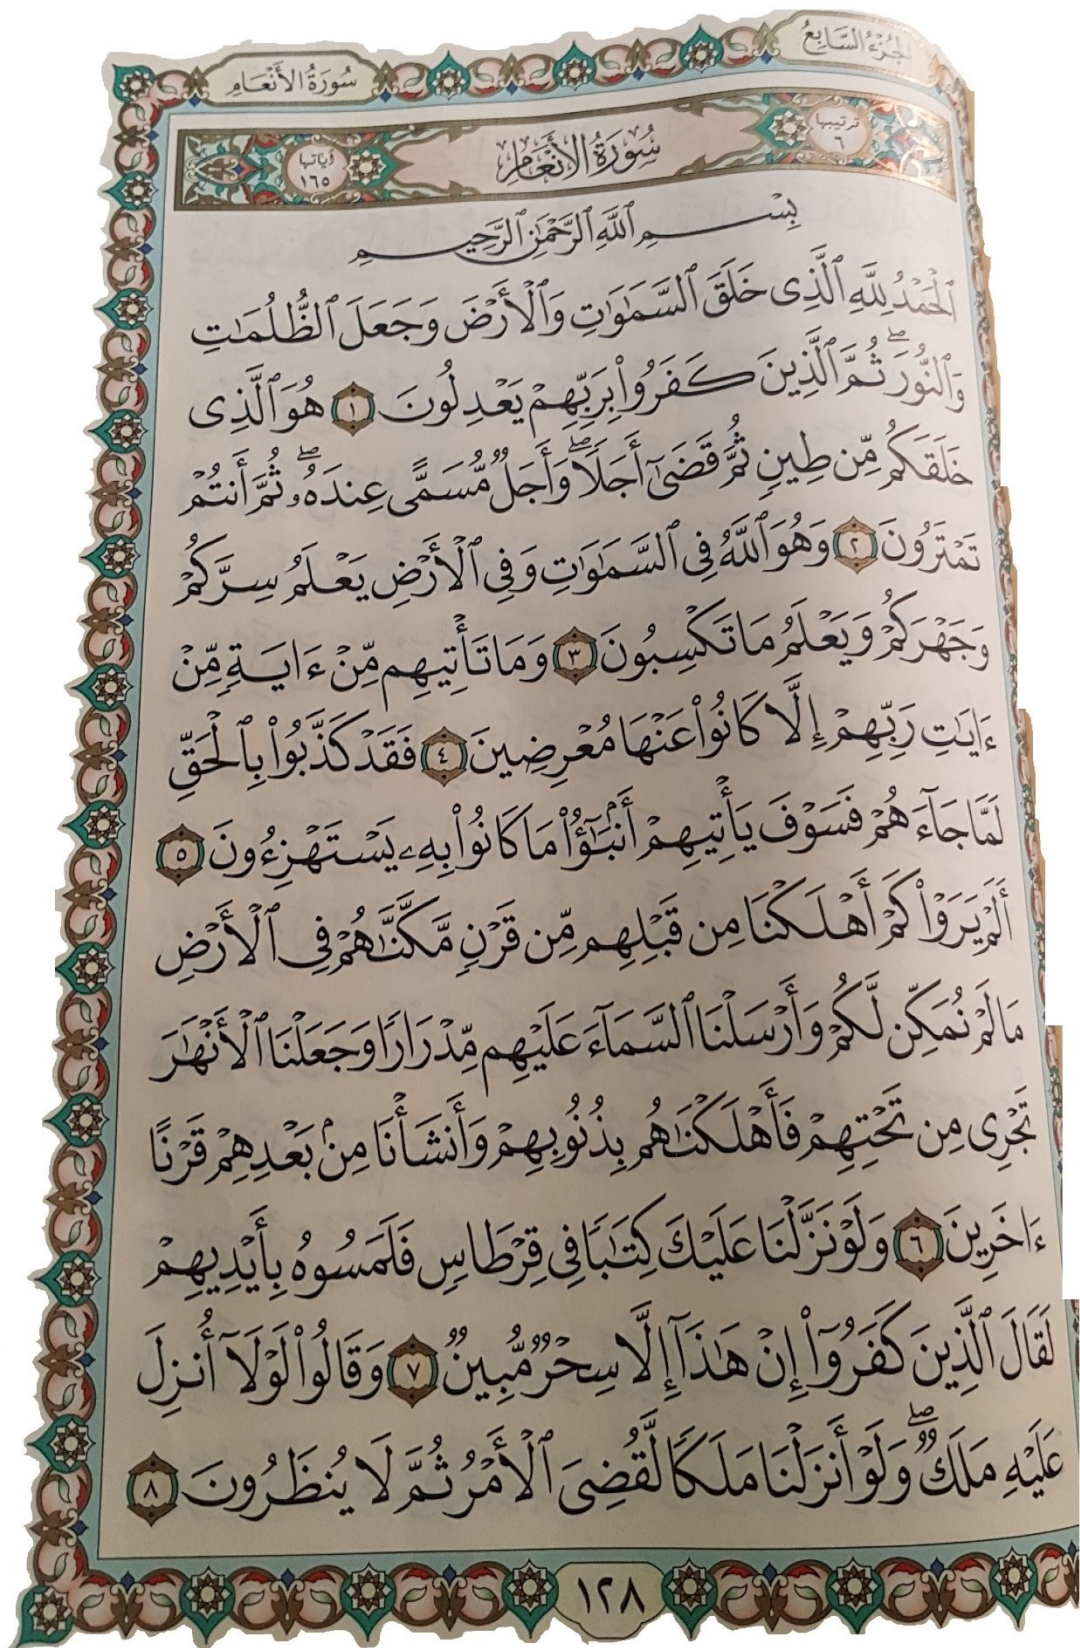 الجزء السابع
سورة الأنعام
ترتيبها ٦
سُورَةُ الأَنْعَامِ
آياتها ١٦٥
بِسْمِ ٱللَّهِ ٱلرَّحْمَٰنِ ٱلرَّحِيمِ
ٱلْحَمْدُ لِلَّهِ ٱلَّذِى خَلَقَ ٱلسَّمَٰوَٰتِ وَٱلْأَرْضَ وَجَعَلَ ٱلظُّلُمَٰتِ
وَٱلنُّورَ ۖ ثُمَّ ٱلَّذِينَ كَفَرُوا۟ بِرَبِّهِمْ يَعْدِلُونَ ١ هُوَ ٱلَّذِى
خَلَقَكُم مِّن طِينٍ ثُمَّ قَضَىٰٓ أَجَلًا ۖ وَأَجَلٌ مُّسَمًّى عِندَهُۥ ۖ ثُمَّ أَنتُمْ
تَمْتَرُونَ ٢ وَهُوَ ٱللَّهُ فِى ٱلسَّمَٰوَٰتِ وَفِى ٱلْأَرْضِ يَعْلَمُ سِرَّكُمْ
وَجَهْرَكُمْ وَيَعْلَمُ مَا تَكْسِبُونَ ٣ وَمَا تَأْتِيهِم مِّنْ ءَايَةٍ مِّنْ
ءَايَٰتِ رَبِّهِمْ إِلَّا كَانُوا۟ عَنْهَا مُعْرِضِينَ ٤ فَقَدْ كَذَّبُوا۟ بِٱلْحَقِّ
لَمَّا جَآءَهُمْ فَسَوْفَ يَأْتِيهِمْ أَنۢبَٰٓؤُا۟ مَا كَانُوا۟ بِهِۦ يَسْتَهْزِءُونَ ٥
أَلَمْ يَرَوْا۟ كَمْ أَهْلَكْنَا مِن قَبْلِهِم مِّن قَرْنٍ مَّكَّنَّٰهُمْ فِى ٱلْأَرْضِ
مَا لَمْ نُمَكِّن لَّكُمْ وَأَرْسَلْنَا ٱلسَّمَآءَ عَلَيْهِم مِّدْرَارًا وَجَعَلْنَا ٱلْأَنْهَٰرَ
تَجْرِى مِن تَحْتِهِمْ فَأَهْلَكْنَٰهُم بِذُنُوبِهِمْ وَأَنشَأْنَا مِنۢ بَعْدِهِمْ قَرْنًا
ءَاخَرِينَ ٦ وَلَوْ نَزَّلْنَا عَلَيْكَ كِتَٰبًا فِى قِرْطَاسٍ فَلَمَسُوهُ بِأَيْدِيهِمْ
لَقَالَ ٱلَّذِينَ كَفَرُوٓا۟ إِنْ هَٰذَآ إِلَّا سِحْرٌ مُّبِينٌ ٧ وَقَالُوا۟ لَوْلَآ أُنزِلَ
عَلَيْهِ مَلَكٌ ۖ وَلَوْ أَنزَلْنَا مَلَكًا لَّقُضِىَ ٱلْأَمْرُ ثُمَّ لَا يُنظَرُونَ ٨
١٢٨